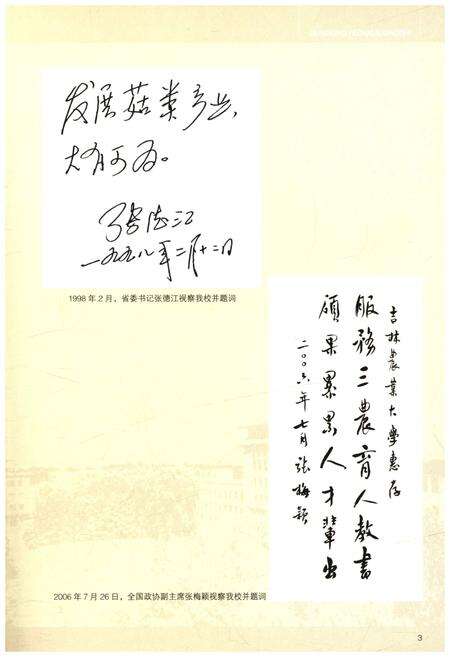 发展菇类产业,
大有可为。
张德江
一九九八年二月十二日
1998 年 2 月，省委书记张德江视察我校并题词
吉林農業大學惠存
服務三農育人教書
碩果累累人才輩出
二〇〇六年七月張梅穎
2006 年 7 月 26 日，全国政协副主席张梅颖视察我校并题词
3